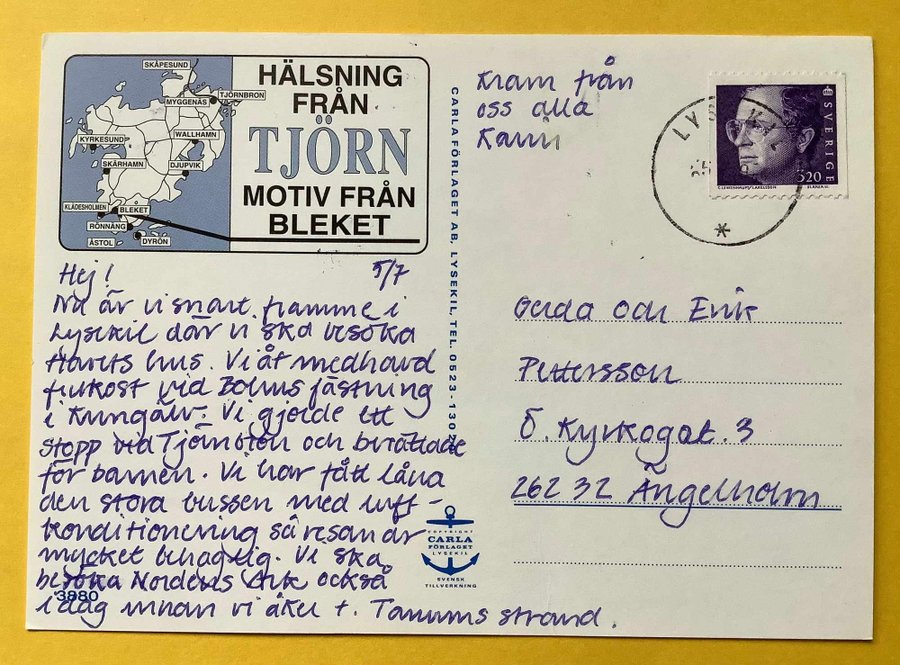 SKÅPESUND
MYGGENÄS
TJÖRNBRON
KYRKESUND
WALLHAMN
SKÄRHAMN
DJUPVIK
KLÄDESHOLMEN
BLEKET
RÖNNÄNG
ÅSTOL
DYRÖN
HÄLSNING
FRÅN
TJÖRN
MOTIV FRÅN
BLEKET
Hej! 5/7
Nu är vi snart framme i
Lysekil där vi ska besöka
Havets hus. Vi åt medhavd
frukost vid Bohus fästning
i Kungälv. Vi gjorde ett
stopp vid Tjörnbron och berättade
för barnen. Vi har fått låna
den stora bussen med luft-
konditionering så resan är
mycket behaglig. Vi ska
besöka Nordens Ark också
i dag innan vi åker t. Tanums strand.
3880
CARLA FÖRLAGET AB, LYSEKIL, TEL. 0523-130
COPYRIGHT
CARLA
FÖRLAGET
LYSEKIL
SVENSK
TILLVERKNING
Kram från
oss alla
Karin
LYS K
SVERIGE
320
Gerda och Erik
Pettersson
Ö. Kyrkogat. 3
262 32 Ängelholm